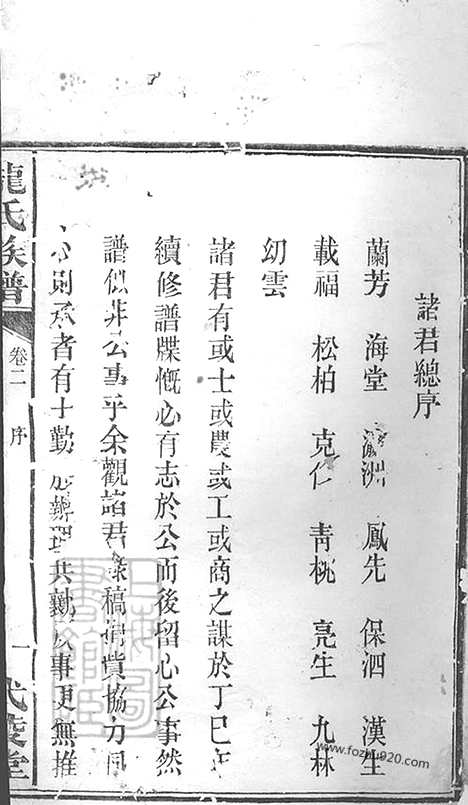 諸君總序
蘭芳 海堂 瀛洲 鳳先 保泗 漢生
載福 松柏 克仁 靑桃 亮生 九林
幻雲
諸君有或士或農或工或商之謀於丁巳年
續修譜牒慨必有志於公而後留心公事然
譜似非公事乎余觀諸君 稿 貲協力同
則承者有十勤 理共勷 事更無推
龍氏族譜
卷二 序
一
武陵堂
www.fozhu920.com